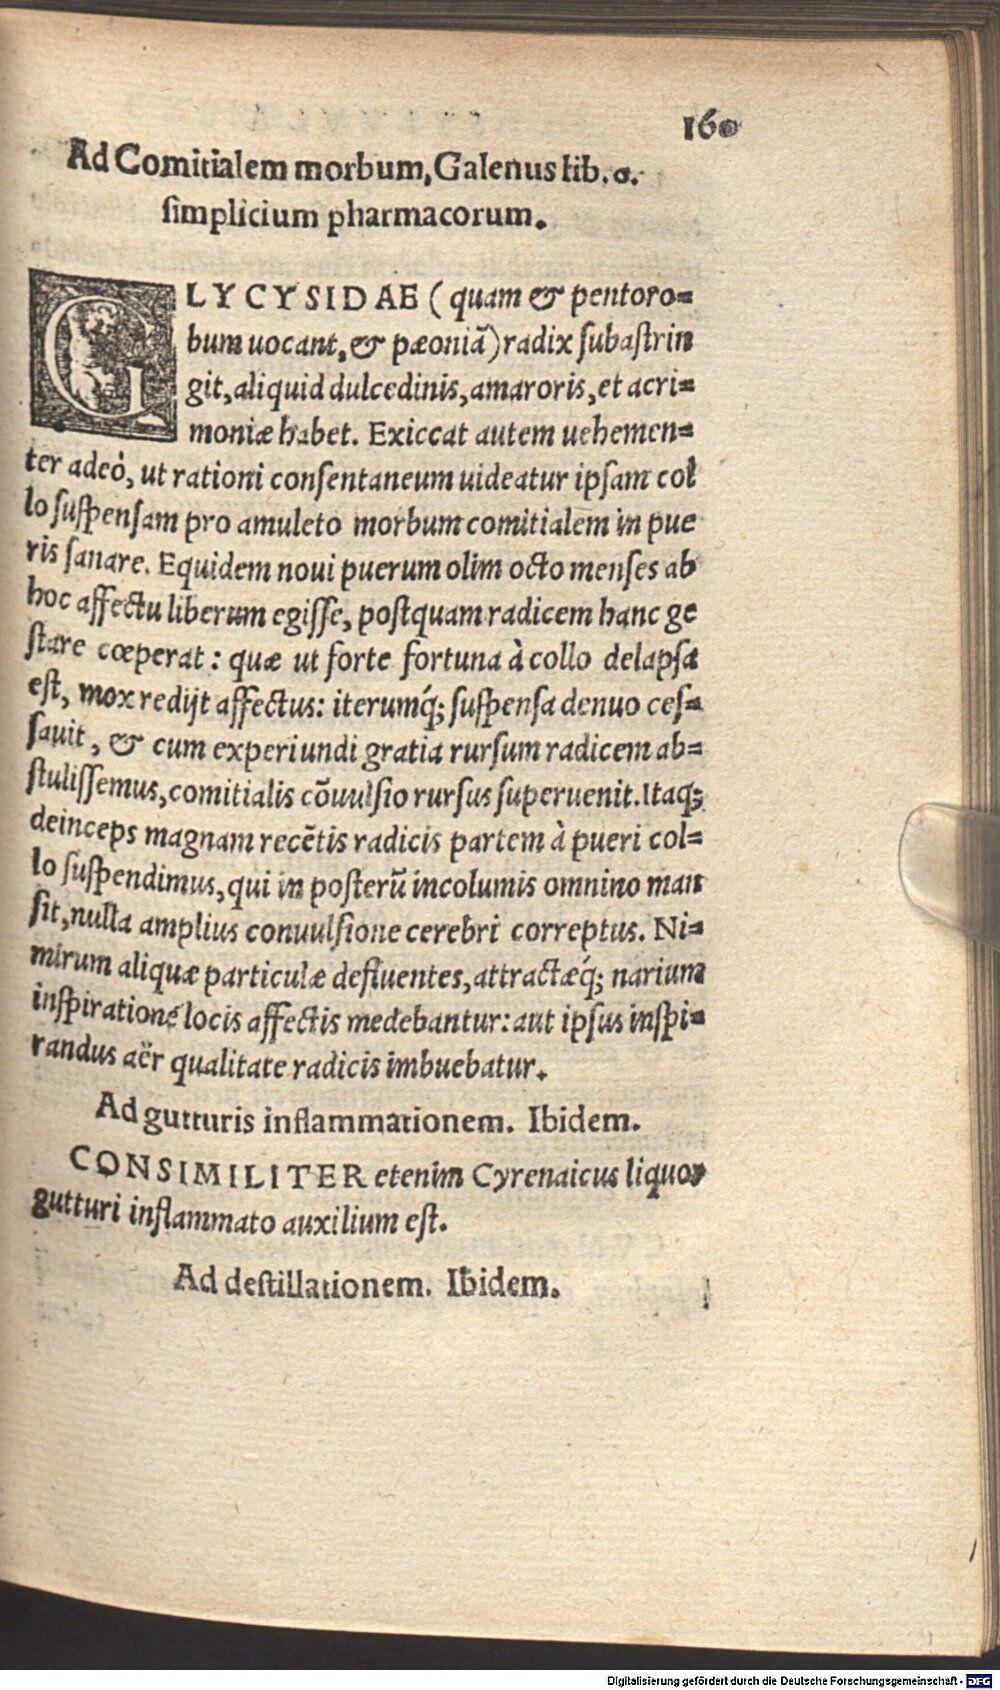 160
Ad Comitialem morbum, Galenus lib. 6.
simplicium pharmacorum.
GLYCYSIDAE (quam & pentoro-
bum uocant, & pæoniã) radix subastrin
git, aliquid dulcedinis, amaroris, et acri-
moniæ habet. Exiccat autem uehemen-
ter adeò, ut rationi consentaneum uideatur ipsam col
lo suspensam pro amuleto morbum comitialem in pue
ris sanare. Equidem noui puerum olim octo menses ab
hoc affectu liberum egisse, postquam radicem hanc ge
stare cœperat: quæ ut forte fortuna à collo delapsa
est, mox redijt affectus: iterumq́; suspensa denuo ces-
sauit, & cum experiundi gratia rursum radicem ab-
stulissemus, comitialis cõuulsio rursus superuenit. Itaq;
deinceps magnam recẽtis radicis partem à pueri col-
lo suspendimus, qui in posterũ incolumis omnino man
sit, nulla amplius conuulsione cerebri correptus. Ni-
mirum aliquæ particulæ defluentes, attractæq́; narium
inspiratione locis affectis medebantur: aut ipsus inspi-
randus aër qualitate radicis imbuebatur.
Ad gutturis inflammationem. Ibidem.
CONSIMILITER etenim Cyrenaicus liquor
gutturi inflammato auxilium est.
Ad destillationem. Ibidem.
Digitalisierung gefördert durch die Deutsche Forschungsgemeinschaft - DFG